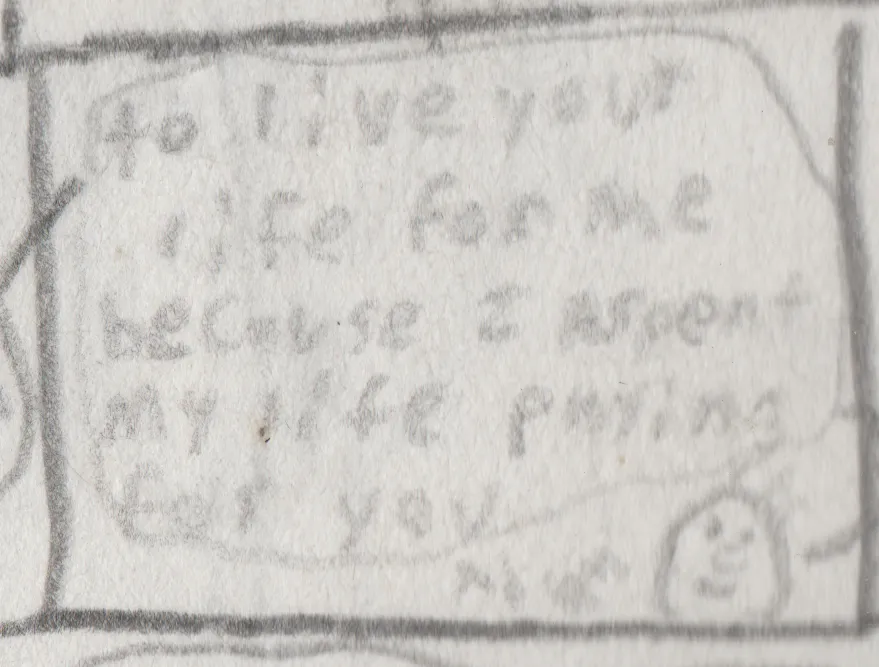 to live your
life for me
because I aspent
my life paying
for you